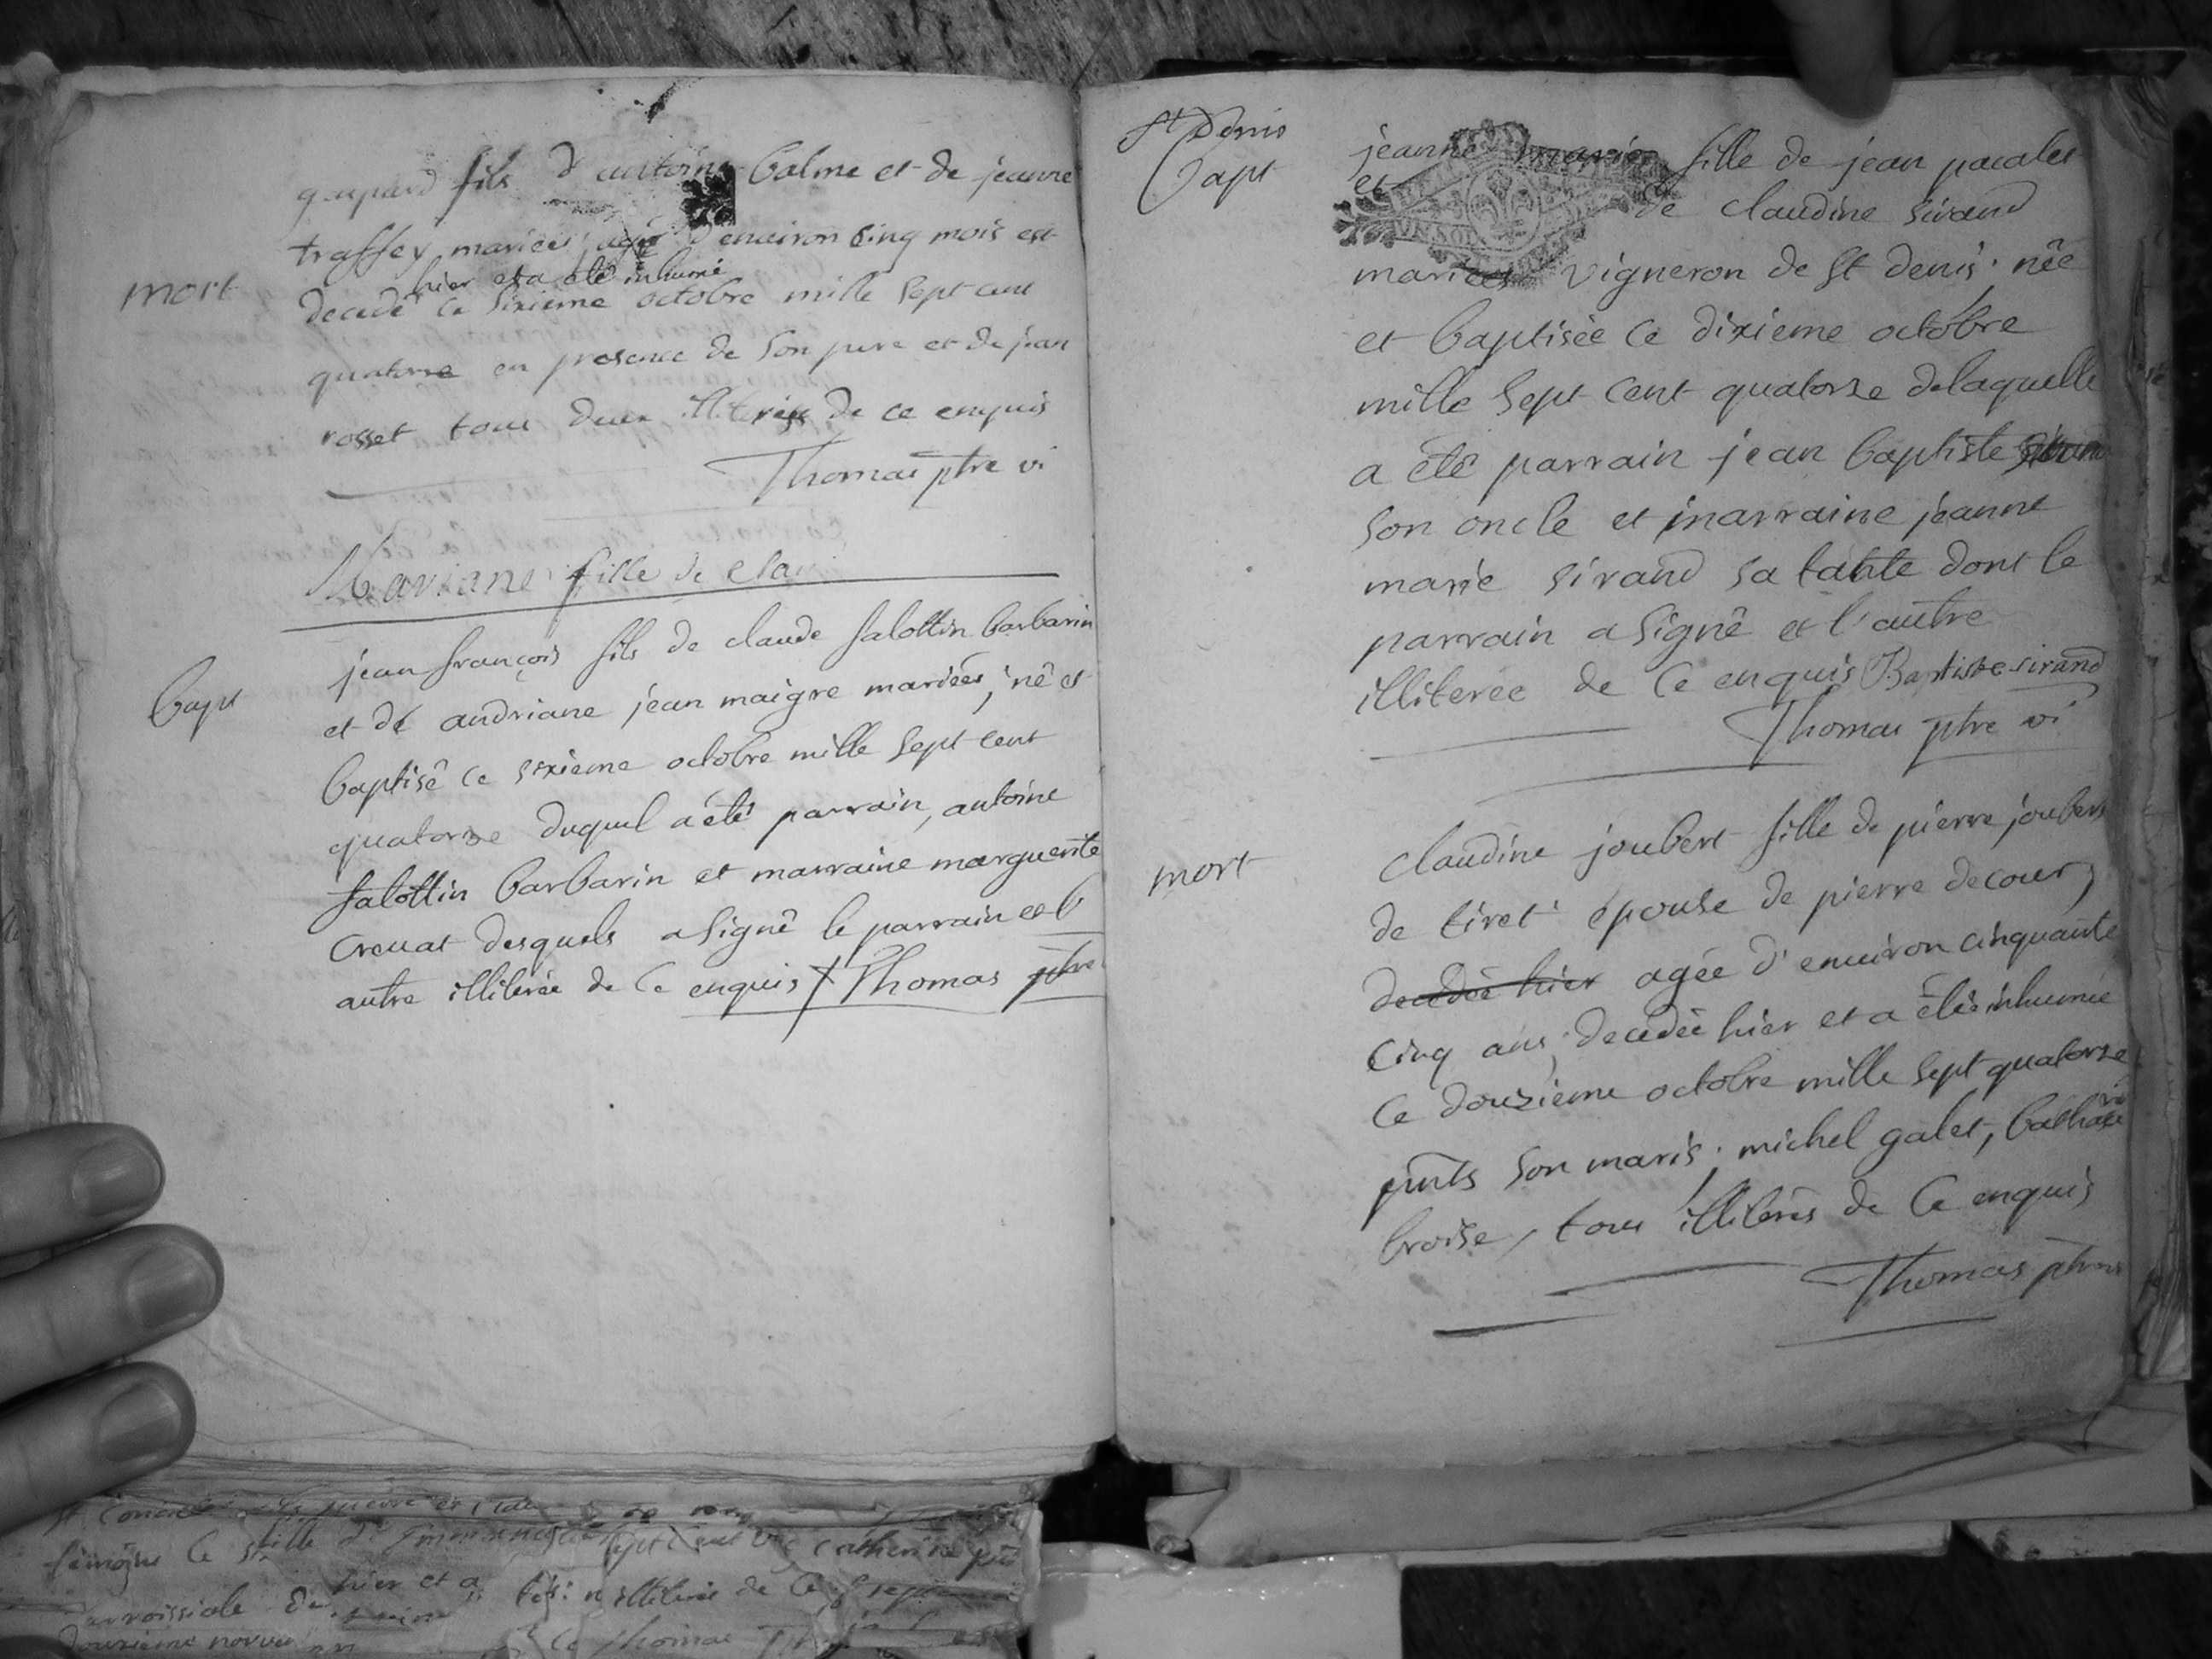 mort
gaspard fils d'antoine balme et de jeanne
traffey mariés agé d'environ cinq mois est
hier et a été inhumé
decedé ce sixieme octobre mille sept cent
quatorze en presence de son pere et de jean
rosset tous deux illiterés de ce enquis
Thomas ptre vi
Mariane fille de clau
bapt
jean françois fils de claude falottin barbarin
et de andriane jean maigre mariées, né et
baptisé ce sixieme octobre mille sept cent
quatorze duquel a été parrain, antoine
falottin barbarin et marraine marguerite
crouat desquels a signé le parrain et l
autre illiterée de ce enquis Thomas ptre
St Denis
bapt
jeanne marie fille de jean pacalet
et de claudine sirand
mariées vigneron de St denis, née
et baptisée ce dixieme octobre
mille sept cent quatorze delaquelle
a été parrain jean baptiste
son oncle et marraine jeanne
marie sirand sa tante dont le
parrain a signé et l'autre
illiterée de ce enquis Baptiste sirand
Thomas ptre vi
mort
claudine joubert fille de pierre joubert
de tiret épouse de pierre decour,
decedée hier agée d'environ cinquante
cinq ans, decedée hier et a étée inhumée
ce douzieme octobre mille sept quatorze
pnts son maris, michel galet, balthasar
broise, tous illiterés de ce enquis
Thomas ptre vi
hier et a
illiterée de ce